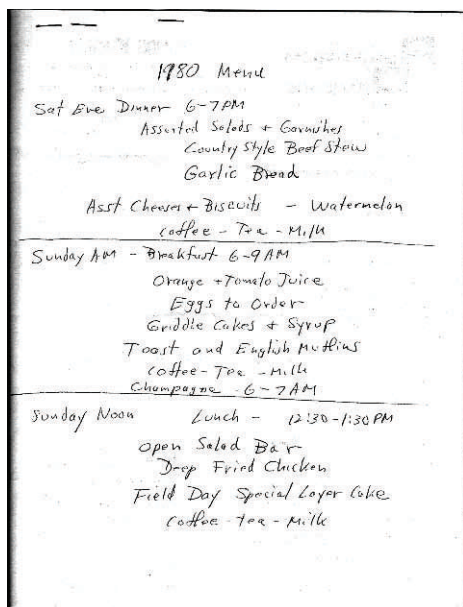 1980 Menu
Sat Eve Dinner 6-7PM
Assorted Salads + Garnishes
Country Style Beef Stew
Garlic Bread
Asst Cheeses + Biscuits - Watermelon
Coffee - Tea - Milk
Sunday AM - Breakfast 6-9 AM
Orange + Tomato Juice
Eggs to Order
Griddle Cakes + Syrup
Toast and English Muffins
Coffee - Tea - Milk
Champagne - 6-7AM
Sunday Noon Lunch - 12:30-1:30PM
Open Salad Bar
Deep Fried Chicken
Field Day Special Layer Cake
Coffee - Tea - Milk